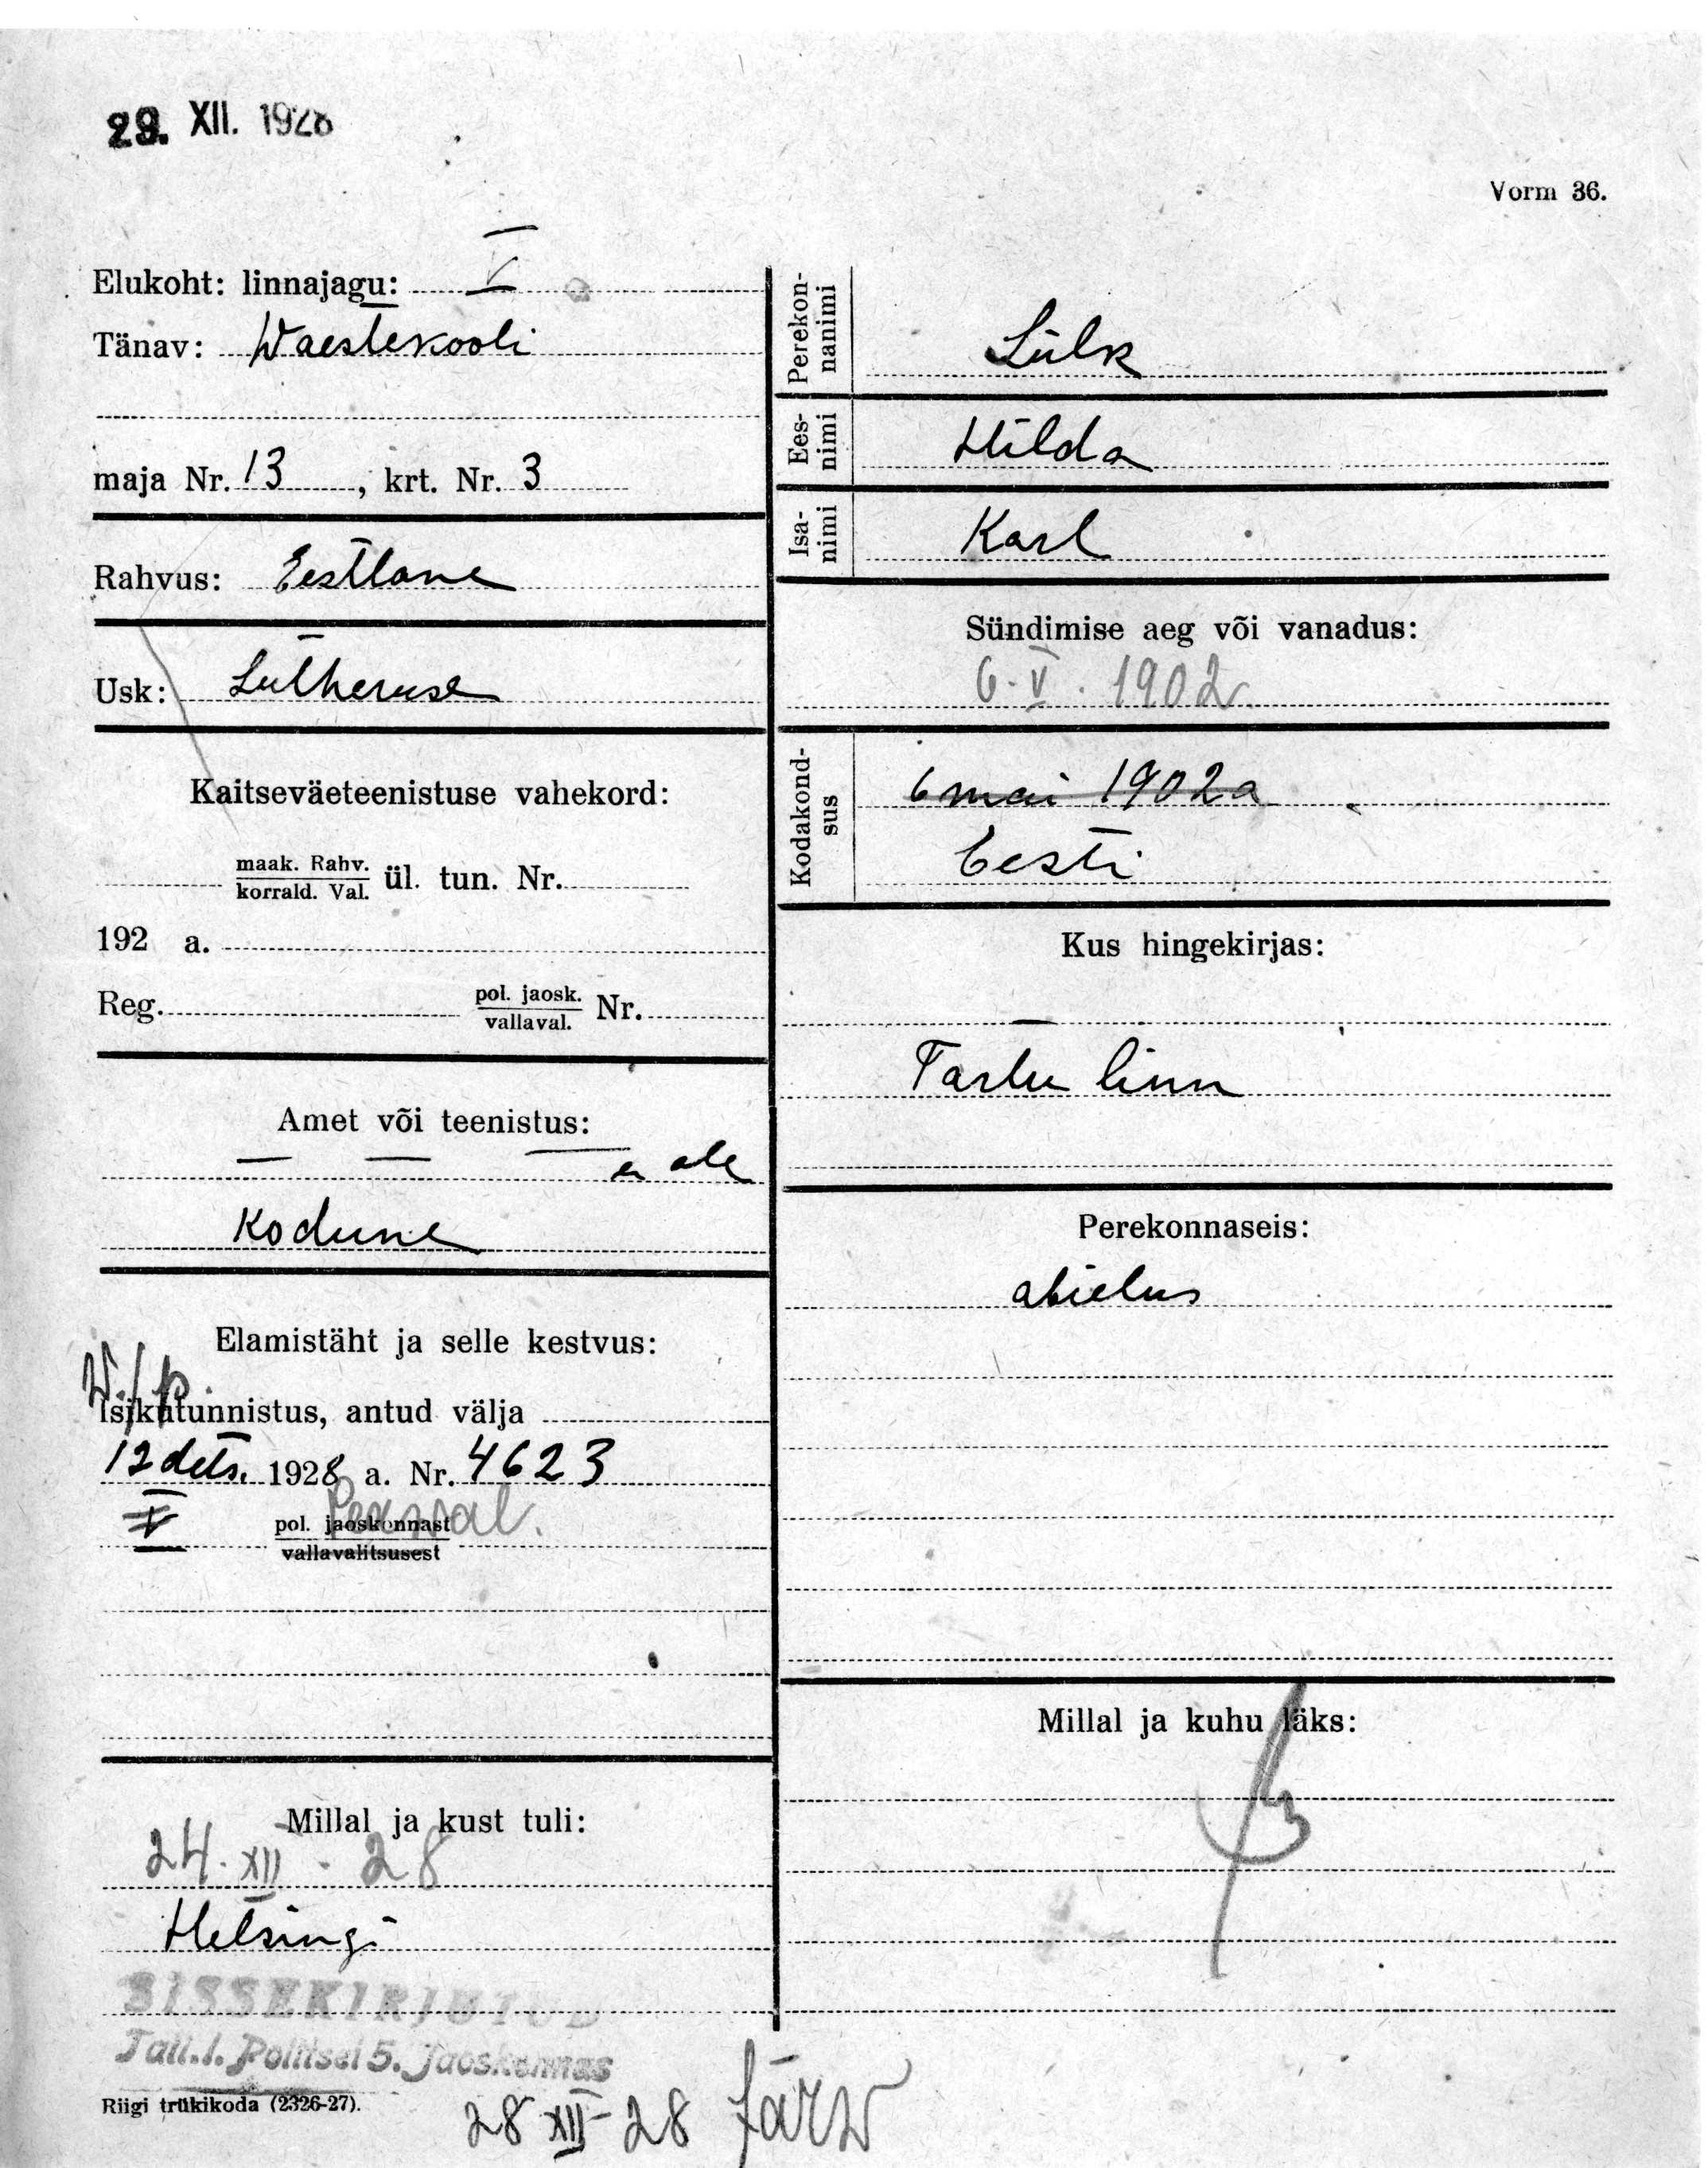 29. XII. 1928
Vorm 36.
Elukoht: linnajagu: V
Tänav: Waestekooli
maja Nr. 13, krt. Nr. 3
Rahvus: Eestlane
Usk: Lutheruse
Kaitseväeteenistuse vahekord:
maak. Rahv.
korrald. Val. ül. tun. Nr.
192 a.
Reg. pol. jaosk.
vallaval. Nr.
Amet või teenistus:
— — — ei ole
Kodune
Elamistäht ja selle kestvus:
W/p.
Isikutunnistus, antud välja
12 dets. 1928 a. Nr. 4623
V pol. jaoskonnast
vallavalitsusest
Millal ja kust tuli:
24. XII. 28
Helsingi
SISSEKIRJUTUD
Tall. l. Politsei 5. Jaoskonnas
Riigi trükikoda (2326-27).
28 XII 28 Järw
Perekon-
nanimi
Lülk
Ees-
nimi
Hilda
Isa-
nimi
Karl
Sündimise aeg või vanadus:
6. V. 1902
Kodakond-
sus
6 mai 1902 a
Eesti
Kus hingekirjas:
Tartu linn
Perekonnaseis:
abielus
Millal ja kuhu läks: